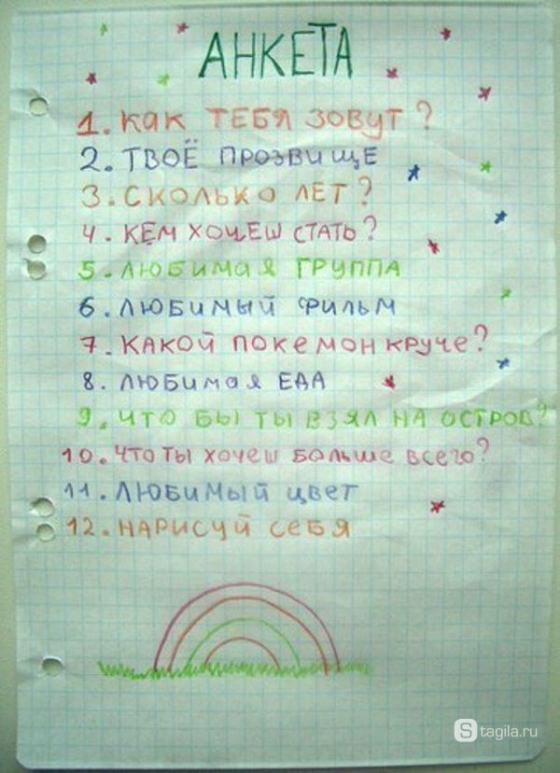 АНКЕТА
1. КАК ТЕБЯ ЗОВУТ?
2. ТВОЁ ПРОЗВИЩЕ
3. СКОЛЬКО ЛЕТ?
4. КЕМ ХОЧЕШ СТАТЬ?
5. ЛЮБИМАЯ ГРУППА
6. ЛЮБИМЫЙ ФИЛЬМ
7. КАКОЙ ПОКЕМОН КРУЧЕ?
8. ЛЮБИМАЯ ЕДА
9. ЧТО БЫ ТЫ ВЗЯЛ НА ОСТРОВ?
10. ЧТО ТЫ ХОЧЕШ БОЛЬШЕ ВСЕГО?
11. ЛЮБИМЫЙ ЦВЕТ
12. НАРИСУЙ СЕБЯ
Stagila.ru